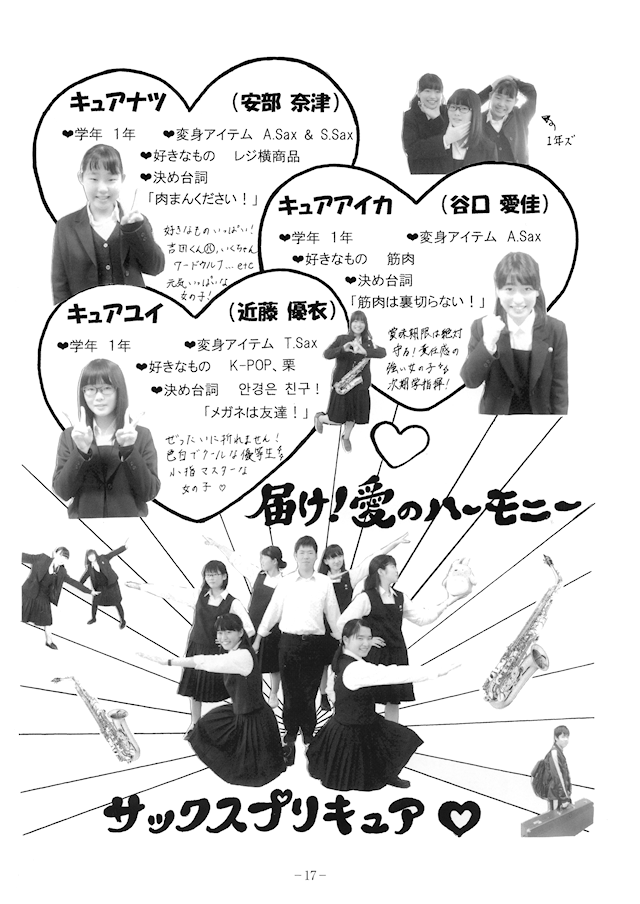 キュアナツ （安部 奈津）
❤学年 1年 ❤変身アイテム A.Sax & S.Sax
❤好きなもの レジ横商品
❤決め台詞
「肉まんください！」
好きなものいっぱい！
吉田くん㊇、いくちゃん
ワードウルフ…etc
元気いっぱいな
女の子！
1年ズ
キュアアイカ （谷口 愛佳）
❤学年 1年 ❤変身アイテム A.Sax
❤好きなもの 筋肉
❤決め台詞
「筋肉は裏切らない！」
賞味期限は絶対
守る！責任感の
強い女の子な
次期学指揮！
キュアユイ （近藤 優衣）
❤学年 1年 ❤変身アイテム T.Sax
❤好きなもの K-POP、栗
❤決め台詞 안경은 친구！
「メガネは友達！」
ぜったいに折れません！
色白でクールな優等生
小指マスターな
女の子♡
届け！愛のハーモニー
サックスプリキュア♡
－17－